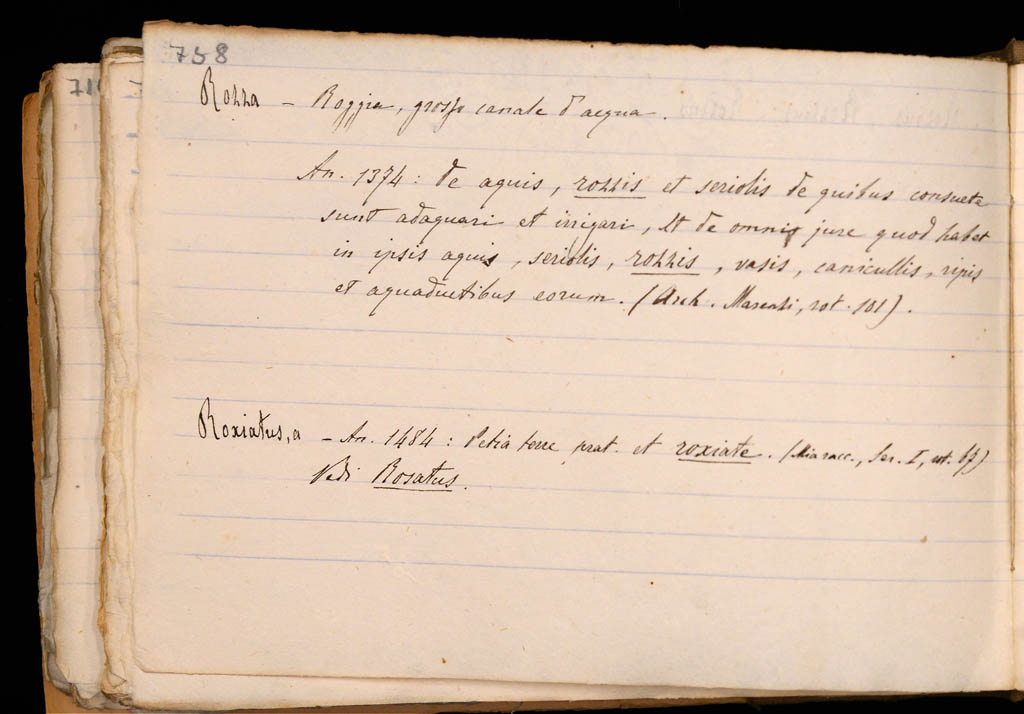 758
Rozza - Roggia, grosso canale d'acqua.
An. 1374: de aquis, rozzis et seriolis de quibus consueta
sunt adaquari et irrigari, et de omni jure quod habet
in ipsis aquis, seriolis, rozzis, vasis, canicullis, ripis
et aquaductibus eorum. (Arch. rot. 101).
Roxiatus, a - An. 1484: Petia terre prat. et roxiate. (Mia racc., Ser. I, rot. 67)
Vedi Rosatus.